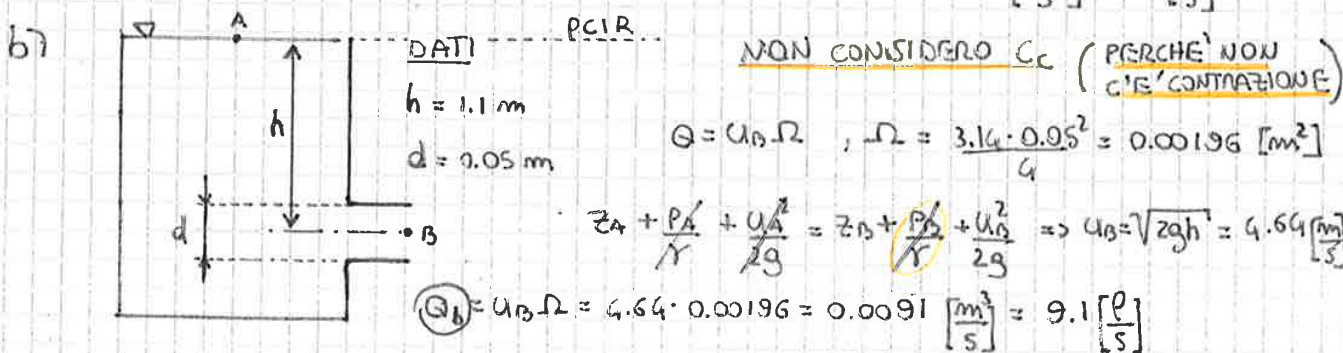 b)
A
PCIR
DATI
h = 1.1 m
d = 0.05 m
h
d
B
NON CONSIDERO Cc ( PERCHE' NON C'E' CONTRAZIONE )
Q = U_B Ω , Ω = 3.14 · 0.05² / 4 = 0.00196 [m²]
z_A + p_A/γ + U_A²/2g = z_B + p_B/γ + U_B²/2g => U_B = √2gh = 4.64 [m/s]
Q_b = U_B Ω = 4.64 · 0.00196 = 0.0091 [m³/s] = 9.1 [ℓ/s]